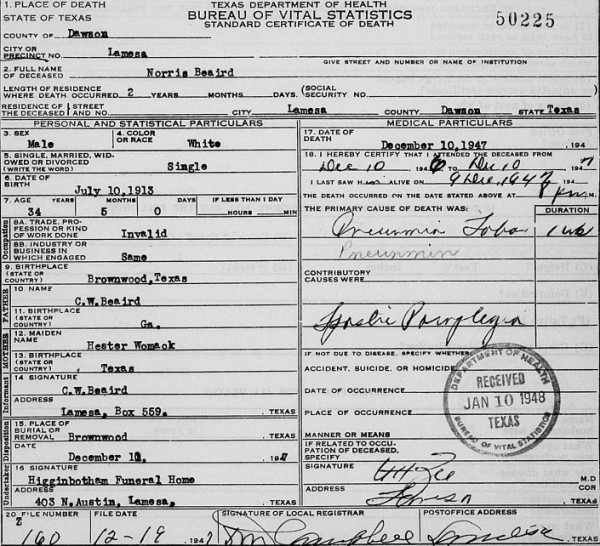 1. PLACE OF DEATH
STATE OF TEXAS
TEXAS DEPARTMENT OF HEALTH
BUREAU OF VITAL STATISTICS
STANDARD CERTIFICATE OF DEATH
50225
COUNTY OF Dawson
CITY OR PRECINCT NO. Lamesa
GIVE STREET AND NUMBER OR NAME OF INSTITUTION
2. FULL NAME OF DECEASED Norris Beaird
LENGTH OF RESIDENCE WHERE DEATH OCCURRED 2 YEARS MONTHS DAYS. (SOCIAL SECURITY NO.
RESIDENCE OF THE DECEASED STREET AND NO. CITY Lamesa COUNTY Dawson STATE Texas
PERSONAL AND STATISTICAL PARTICULARS
3. SEX Male
4. COLOR OR RACE White
5. SINGLE, MARRIED, WIDOWED OR DIVORCED (WRITE THE WORD) Single
6. DATE OF BIRTH July 10,1913
7. AGE YEARS MONTHS DAYS IF LESS THAN 1 DAY
34 5 0 HOURS MIN
Occupation
8A. TRADE, PROFESSION OR KIND OF WORK DONE Invalid
8B. INDUSTRY OR BUSINESS IN WHICH ENGAGED Same
9. BIRTHPLACE (STATE OR COUNTRY) Brownwood,Texas
FATHER
10. NAME C.W.Beaird
11. BIRTHPLACE (STATE OR COUNTRY) Ga.
MOTHER
12. MAIDEN NAME Hester Womack
13. BIRTHPLACE (STATE OR COUNTRY) Texas
Informant
14 SIGNATURE C.W.Beaird
ADDRESS Lamesa, Box 559. , TEXAS
Disposition
15. PLACE OF BURIAL OR REMOVAL Brownwood , TEXAS
DATE December 194
Undertaker
16 SIGNATURE Higginbotham Funeral Home
ADDRESS 403 N.Austin, Lamesa, , TEXAS
MEDICAL PARTICULARS
17. DATE OF DEATH December 10,1947 , 194
18. I HEREBY CERTIFY THAT I ATTENDED THE DECEASED FROM
Dec 10 194 TO Dec 10 1947
I LAST SAW H ALIVE ON 9 Dec, 1947 194
THE DEATH OCCURRED ON THE DATE STATED ABOVE AT 8 pm M.
THE PRIMARY CAUSE OF DEATH WAS: DURATION
Pneumonia Lobar 1 wk
CONTRIBUTORY CAUSES WERE:
Spastic Paraplegia
IF NOT DUE TO DISEASE, SPECIFY WHETHER:
ACCIDENT, SUICIDE, OR HOMICIDE
DATE OF OCCURRENCE
PLACE OF OCCURRENCE , TEXAS
MANNER OR MEANS
IF RELATED TO OCCUPATION OF DECEASED, SPECIFY
SIGNATURE M.D
COR
ADDRESS , TEXAS
DEPARTMENT OF HEALTH
RECEIVED
JAN 10 1948
TEXAS
BUREAU OF VITAL STATISTICS
20 FILE NUMBER FILE DATE SIGNATURE OF LOCAL REGISTRAR POSTOFFICE ADDRESS
Z
160 12-19 1947 Campbell Lamesa , TEXAS